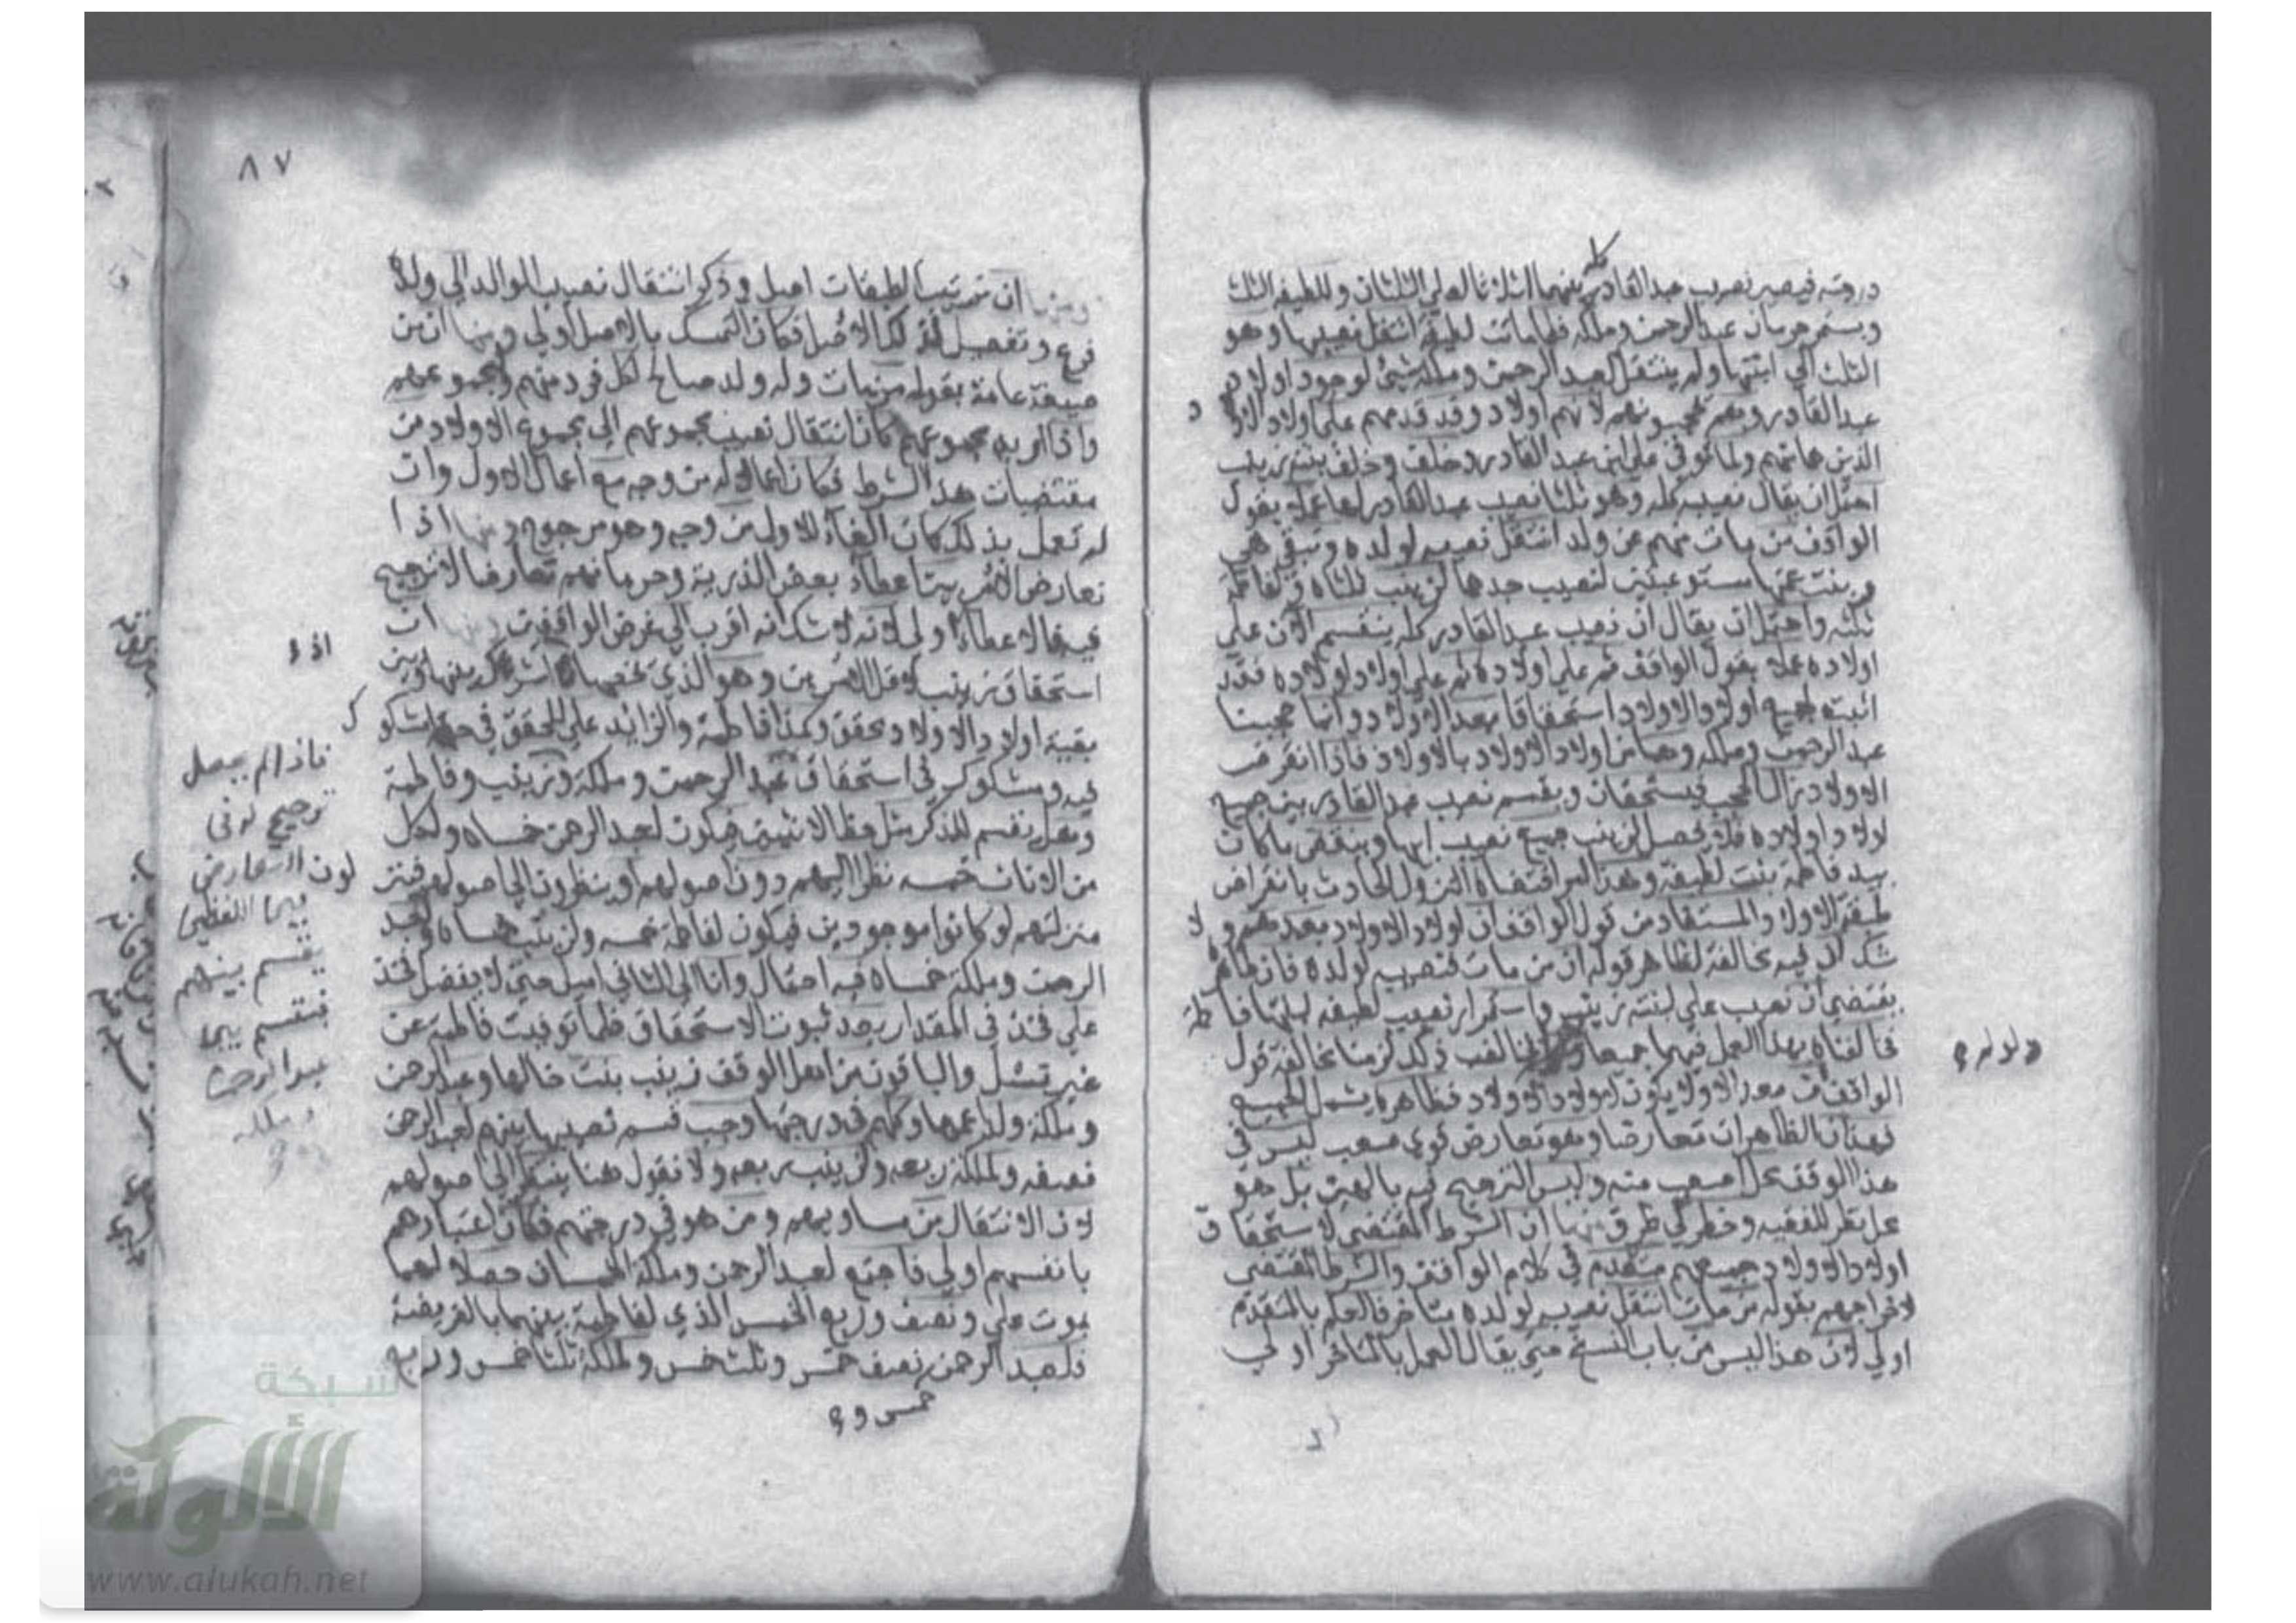 درجته فيصير نصيب عبد القادر كله بينهما اثلاثا لعلي الثلثان وللطيفة الثلث
ويستمر حرمان عبد الرحمن وملكه فلما ماتت لطيفة انتقل نصيبها وهو
الثلث الي ابنتها ولم ينتقل لعبد الرحمن وملكة شيئ لوجود اولاد
عبد القادر وهم يحجبونهم لانهم اولاد وقد قدمهم علي اولاد الاولاد
الذين هما منهم ولما توفي علي ابن عبد القادر وخلف بنته زينب
احتمل ان يقال نصيبه كله وهو ثلثا نصيب عبد القادر لها عملا بقول
الواقف من مات منهم عن ولد انتقل نصيبه لولده وتبقي هي
وبنت عمتها مستوعبتين لنصيب جدهما لزينب ثلثاه ولفاطمة
ثلثه واحتمل ان يقال ان نصيب عبد القادر كله ينقسم الان علي
اولاده عملا بقول الواقف ثم علي اولاده ثم علي اولاد اولاده فقد
اثبت لجميع اولاد الاولاد استحقاقا بعد الاولاد وانما حجبنا
عبد الرحمن وملكه وهما من اولاد الاولاد بالاولاد فاذا انقرض
الاولاد زال الحجب فيستحقان ويقسم نصيب عبد القادر بين جميع
اولاد اولاده فلا يحصل لزينب جميع نصيب ابيها وينقص ما كان
بيد فاطمة بنت لطيفة وهذا امر اقتضاه النزول الحادث بانقراض
طبقة الاولاد المستفاد من قول الواقف ان اولاد الاولاد بعدهم ولا
شك ان فيه مخالفة لظاهر قوله ان من مات فنصيبه لولده فان ظاهره
يقتضي ان نصيب علي لبنته زينب واستمرار نصيب لطيفه لبنتها فاطمة
فخالفناه بهذا العمل فيهما جميعا ولو لم نخالف ذلك لزمنا مخالفة قول
الواقف ان بعد الاولاد يكون لاولاد الاولاد فظاهره يشمل الجميع
فهذان الظاهران تعارضا وهو تعارض قوي صعب ليس في
هذا الوقف محل اصعب منه وليس الترجيح فيه بالهين بل هو
محل نظر للفقيه وخطر لي طرق منها ان الشرط المقتضي لاستحقاق
اولاد الاولاد جميعهم متقدم في كلام الواقف والشرط المقتضي
لاخراجهم بقوله من مات انتقل نصيبه لولده متاخر فالعمل بالمتقدم
اولي لان هذا ليس من باب النسخ حتي يقال العمل بالمتاخر اولي
٨٧
ومنها ان ترتيب الطبقات اصل وذكر انتقال نصيب الوالد الي ولده
فرع وتفصيل لذلك الاصل فكان التمسك بالاصل اولي ومنها ان من
صيغة عامة بقوله من مات وله ولد صالح لكل فرد منهم ولمجموعهم
واذا اريد مجموعهم كان انتقال نصيب مجموعهم الي مجموع الاولاد من
مقتضيات هذا الشرط فكان اعمالا له من وجه مع اعمال الاول وان
لم نعمل بذلك كان الغاء للاول من وجه وهو مرجوح ومنها اذا
تعارض الامر بين اعطاء بعض الذرية وحرمانهم تعارضا لا ترجيح
فيه فالاعطاء اولي لانه لا شك انه اقرب الي غرض الواقفين ومنها ان
استحقاق زينب لاقل الامرين وهو الذي يخصها اذا شرك بينها وبين
بقية اولاد الاولاد محقق وكذا فاطمة والزائد علي المحقق في حقها مشكوك
فيه ومشكوك في استحقاق عبد الرحمن وملكة وزينب وفاطمة
وهل يقسم للذكر مثل حظ الانثيين فيكون لعبد الرحمن خمساه ولكل
من الاناث خمسه نظرا اليهم دون اصولهم او ينظرون الي اصولهم فينزلون
منزلتهم لو كانوا موجودين فيكون لفاطمة خمسه ولزينب خمساه ولعبد
الرحمن وملكة خمساه فيه احتمال وانا الي الثاني اميل حتي لا يفضل فخذ
علي فخذ في المقدار بعد ثبوت الاستحقاق فلما توفيت فاطمة عن
غير نسل والباقون من اهل الوقف زينب بنت خالها وعبد الرحمن
وملكة ولدا عمها وكلهم في درجتها وجب قسم نصيبها بينهم لعبد الرحمن
نصفه ولملكة ربعه ولزينب ربعه ولا نقول هنا ينظر الي اصولهم
لان الانتقال من مساويهم ومن هو في درجتهم فكان اعتبارهم
بانفسهم اولي فاجتمع لعبد الرحمن وملكة الخمسان حصلا لهما
بموت علي ونصف وربع الخمس الذي لفاطمة بينهما بالفريضة
فلعبد الرحمن نصف خمس وثلث خمس ولملكة ثلثا خمس وربع
خمس و
فاذا لم يحصل
ترجيح
التعارض
اللفظين
يقسم بينهم
فيقسم بين
عبد الرحمن
وملكه
شبكة
الألوكة
www.alukah.net